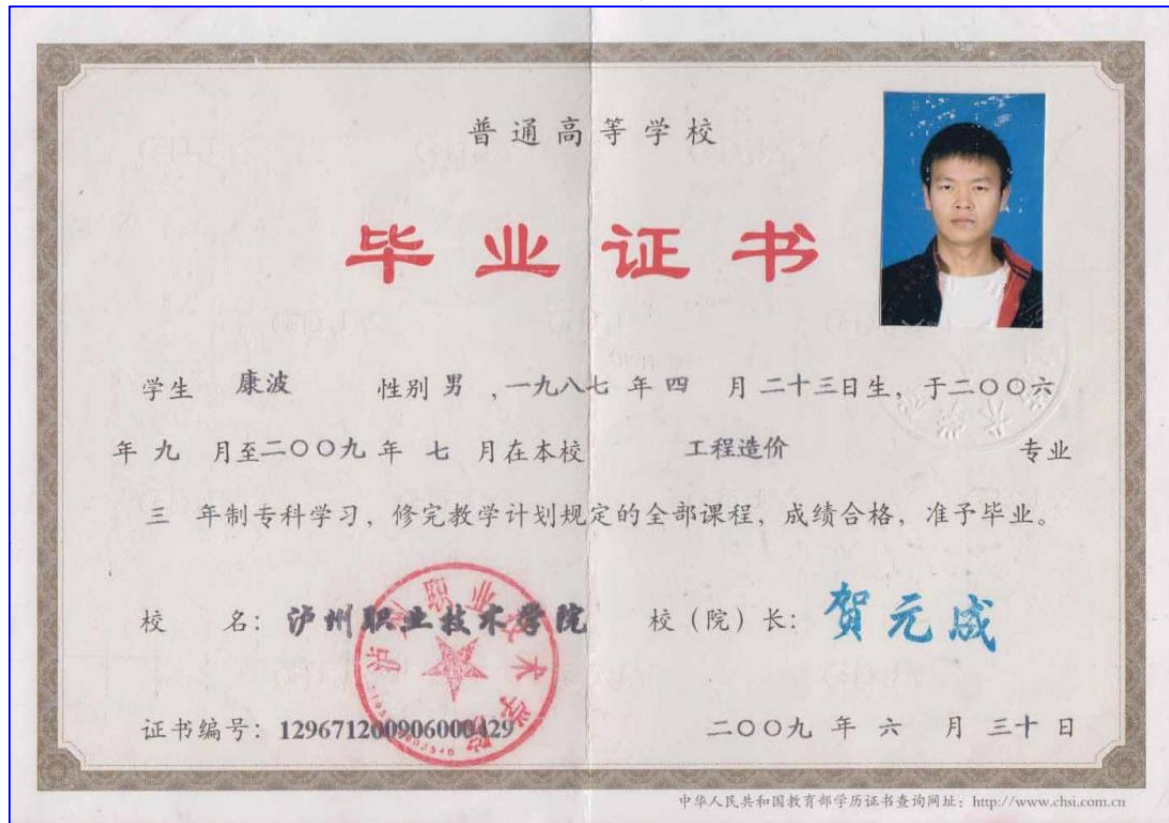 普通高等学校
毕业证书
学生 康波 性别 男 ,一九八七 年 四 月 二十三日生，于二〇〇六
年 九 月至二〇〇九 年 七 月在本校 工程造价 专业
三 年制专科学习，修完教学计划规定的全部课程，成绩合格，准予毕业。
校 名：泸州职业技术学院 校（院）长：贺元成
泸州职业技术学院
证书编号：129671200906000429 二〇〇九 年 六 月 三十 日
中华人民共和国教育部学历证书查询网址：http://www.chsi.com.cn